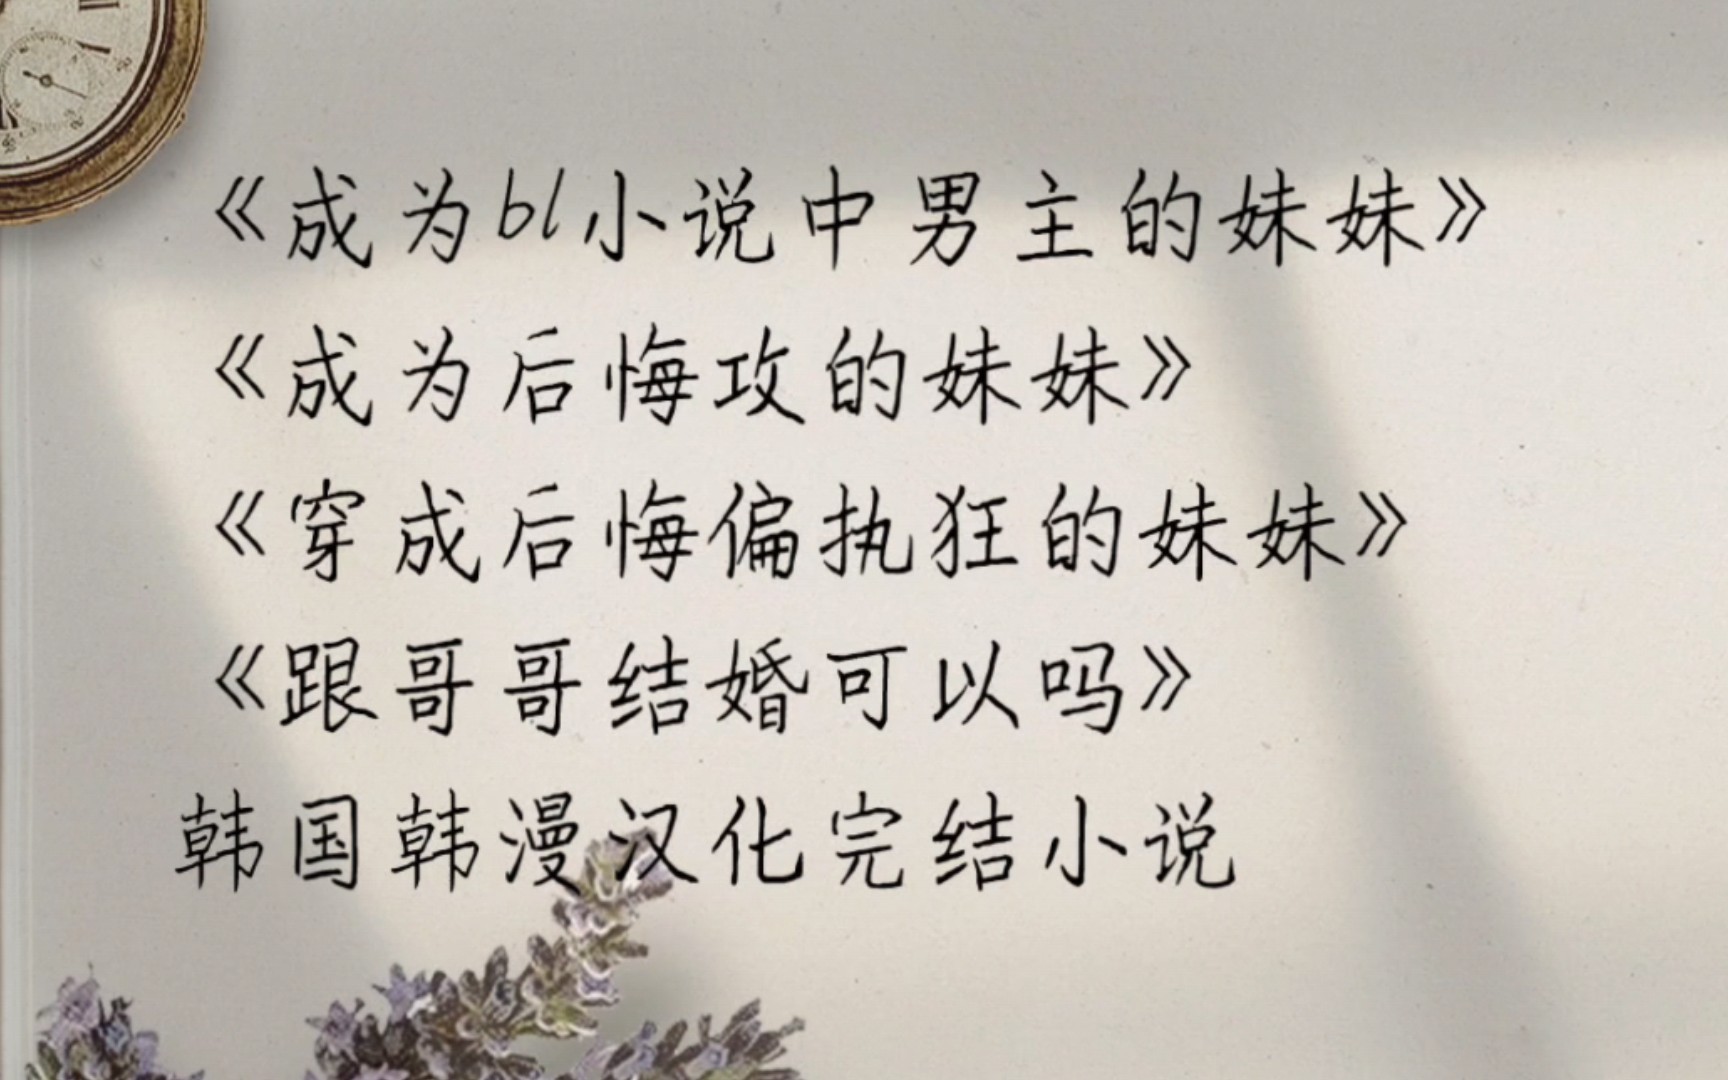 《成为bl小说中男主的妹妹》
《成为后悔攻的妹妹》
《穿成后悔偏执狂的妹妹》
《跟哥哥结婚可以吗》
韩国韩漫汉化完结小说